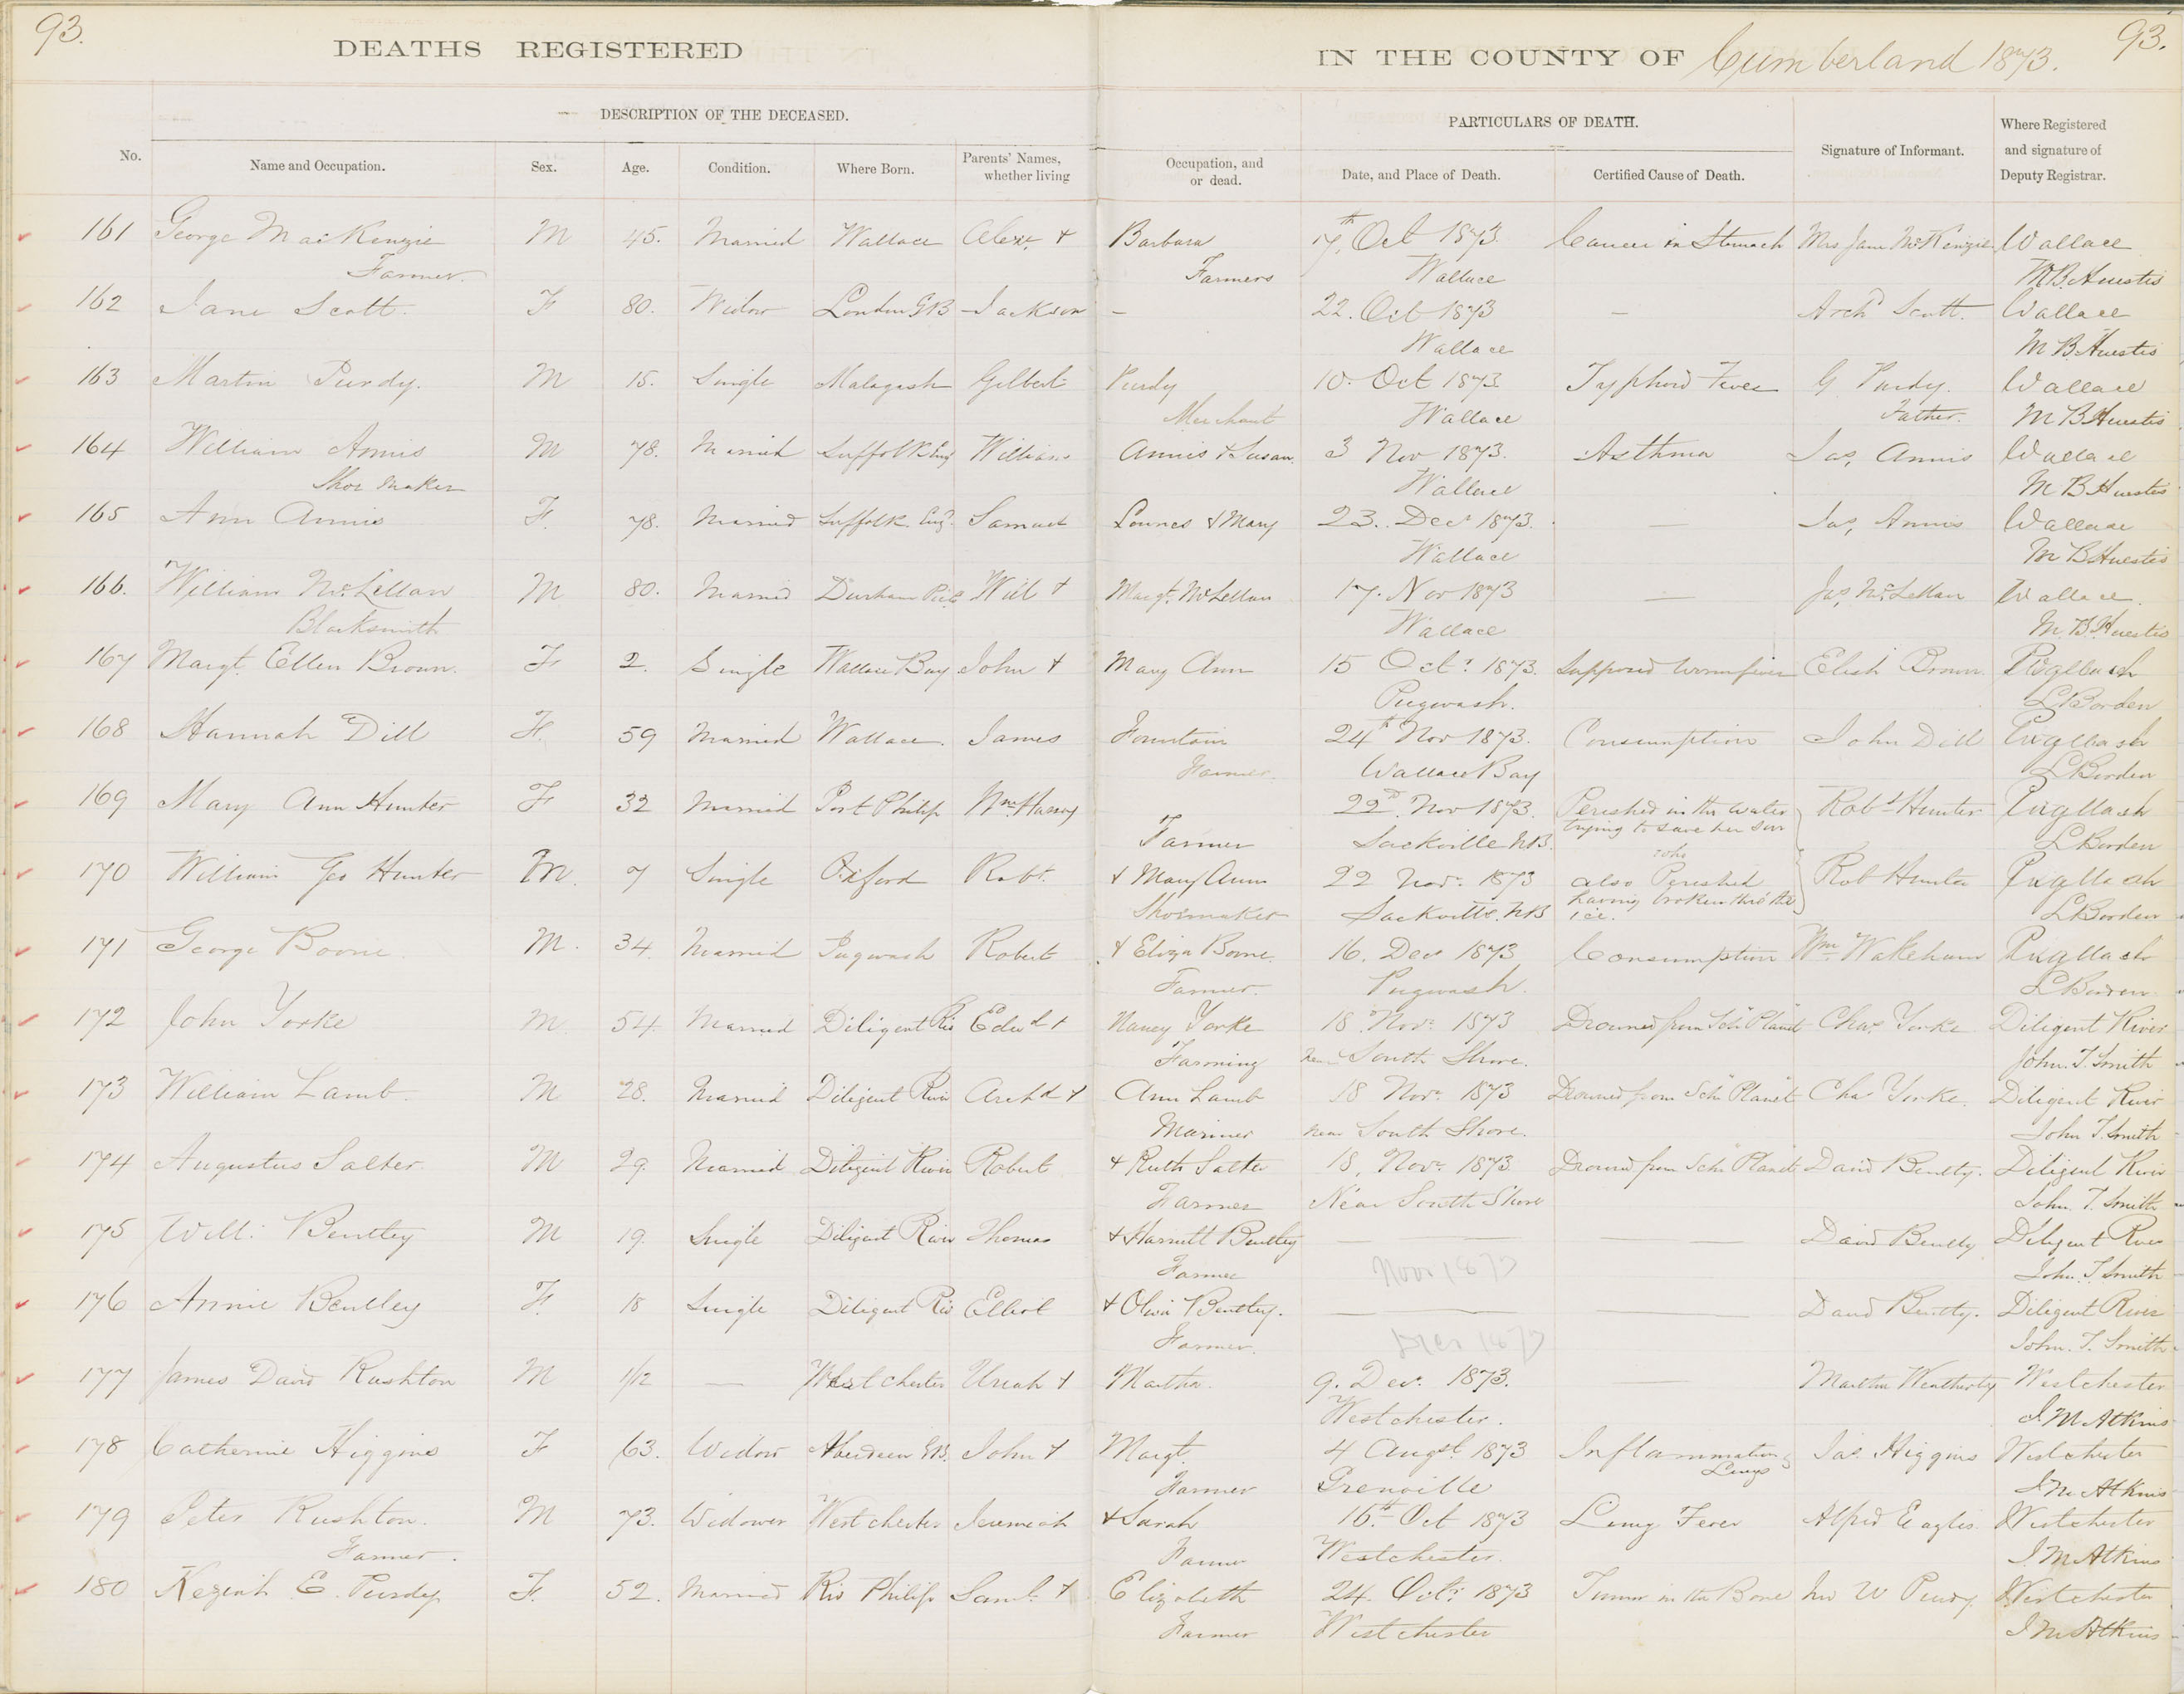 93. 93.
DEATHS REGISTERED IN THE COUNTY OF Cumberland 1873.
DESCRIPTION OF THE DECEASED. PARTICULARS OF DEATH.
No. Name and Occupation. Sex. Age. Condition. Where Born. Parents' Names, whether living Occupation, and or dead. Date, and Place of Death. Certified Cause of Death. Signature of Informant. Where Registered and signature of Deputy Registrar.
161 George MacKenzie M 45. Married Wallace Alexr. + Barbara 17th Oct 1873. Cancer in Stomach Mrs Jane McKenzie Wallace
Farmer. Farmers Wallace M.B. Huestis
162 Jane Scott. F 80. Widow London GB – Jackson – 22. Oct 1873 – Archd Scott. Wallace
Wallace M B Huestis
163 Martin Purdy. M 15. Single Malagash Gilbert Purdy 10. Oct 1873 Typhoid Fever G Purdy. Wallace
Merchant Wallace Father. M B Huestis
164 William Annis M 78. Married Suffolk Eng William Annis & Susan. 3 Nov 1873. Asthma Jas, Annis Wallace
Shoe Maker Wallace M B Huestis
165 Ann Annis F. 78. Married Suffolk. Engd. Samuel Lownes & Mary 23. Decr 1873. — Jas, Annis Wallace
Wallace M B Huestis
166. William McLellan M 80. Married Durham Pict Will + Margt. McLellan 17. Nov 1873 — Jas, McLellan Wallace.
Blacksmith Wallace M. B. Huestis
167 Margt. Ellen Brown. F 2. Single Wallace Bay John + Mary Ann 15 Octr. 1873. Supposed worm fever Elish Brown. Pugwash
Pugwash. L Borden
168 Hannah Dill F. 59 Married Wallace. James Fountain 24th Nov 1873. Consumption John Dill Pugwash
Farmer. Wallace Bay L Borden
169 Mary Ann Hunter F 32 Married Port Philip Wm. Harvey 22D. Nov 1873. Perished in the water Robt Hunter Pugwash
trying to save her son
Farmer Sackville N.B. L Borden
who
170 William Geo Hunter M. 7 Single Oxford Robt. + Mary Ann 22 Novr. 1873 also Perished Rob Hunter Pugwash
having broken thro' the
Shoemaker Sackville. N.B ice. L Borden
171 George Boone. M. 34. Married Pugwash Robert & Eliza Boone. 16. Decr 1873 Consumption Wm Wakeham Pugwash
Farmer. Pugwash. L Borden
172 John Yorke M. 54. Married Diligent Riv Edwd + Nancy Yorke 18 Novr. 1873 Drowned from Schr Planet Chas. Yorke Diligent River
Farming near South Shore. John. T. Smith
173 William Lamb. M 28. Married Diligent River Archd + Ann Lamb 18 Novr. 1873 Drowned from Schr Planet Chas Yorke. Diligent River
Mariner near South Shore. John T. Smith
174 Augustus Salter. M 29. Married Diligent River Robert + Ruth Salter 18, Novr. 1873 Drowned from Schr Planet David Bentley. Diligent River
Farmer Near South Shore John. T. Smith
175 Will: Bentley M 19. Single Diligent River Thomas + Harriett Bentley — — David Bentley Diligent River
Farmer Novr 1873 John. T. Smith
176 Annie Bentley F. 18 Single Diligent Riv Elliot + Olivia Bentley. — — David Bentley. Diligent River
Farmer. Decr 1873 John. T. Smith
177 James David Rushton M 1/12 — Westchester Uriah + Martha. 9. Decr. 1873. — Martha Weatherby Westchester
Westchester. J. M Atkins
178 Catherine Higgins F 63. Widow Aberdeen G.B. John + Margt. 4 Augst. 1873 Inflammation of Jas. Higgins Westchester
Lungs
Farmer Grenville J. M. Atkins
179 Peter Rushton. M 73. Widower Westchester Jeremiah + Sarah 16th. Oct 1873 Lung Fever Alfred Eagles Westchester
Farmer. Farmer Westchester. J. M Atkins
180 Keziah E. Purdy F. 52. Married Riv Philip Saml. + Elizabeth 24. Octr. 1873 Tumor in the Bone W Purdy. Westchester
Farmer Westchester J M Atkins